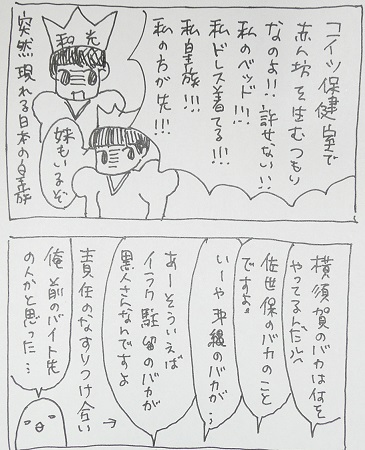 コイツ保健室で
赤ん坊を生むつもり
なのよ!! 許せない!!
私のベッド!!!
私ドレス着てる!!!
私皇族!!!
私の方が先!!!
和光
妹もいるぞ
突然現れる日本の皇族
横須賀のバカは何を
やってるんだい
佐世保のバカのこと
ですよ
いーや沖縄のバカが…
あーそういえば
イラク駐留のバカが
黒人さんなんですよ
責任のなすりつけ合い→
俺前のバイト先
の人かと思った…